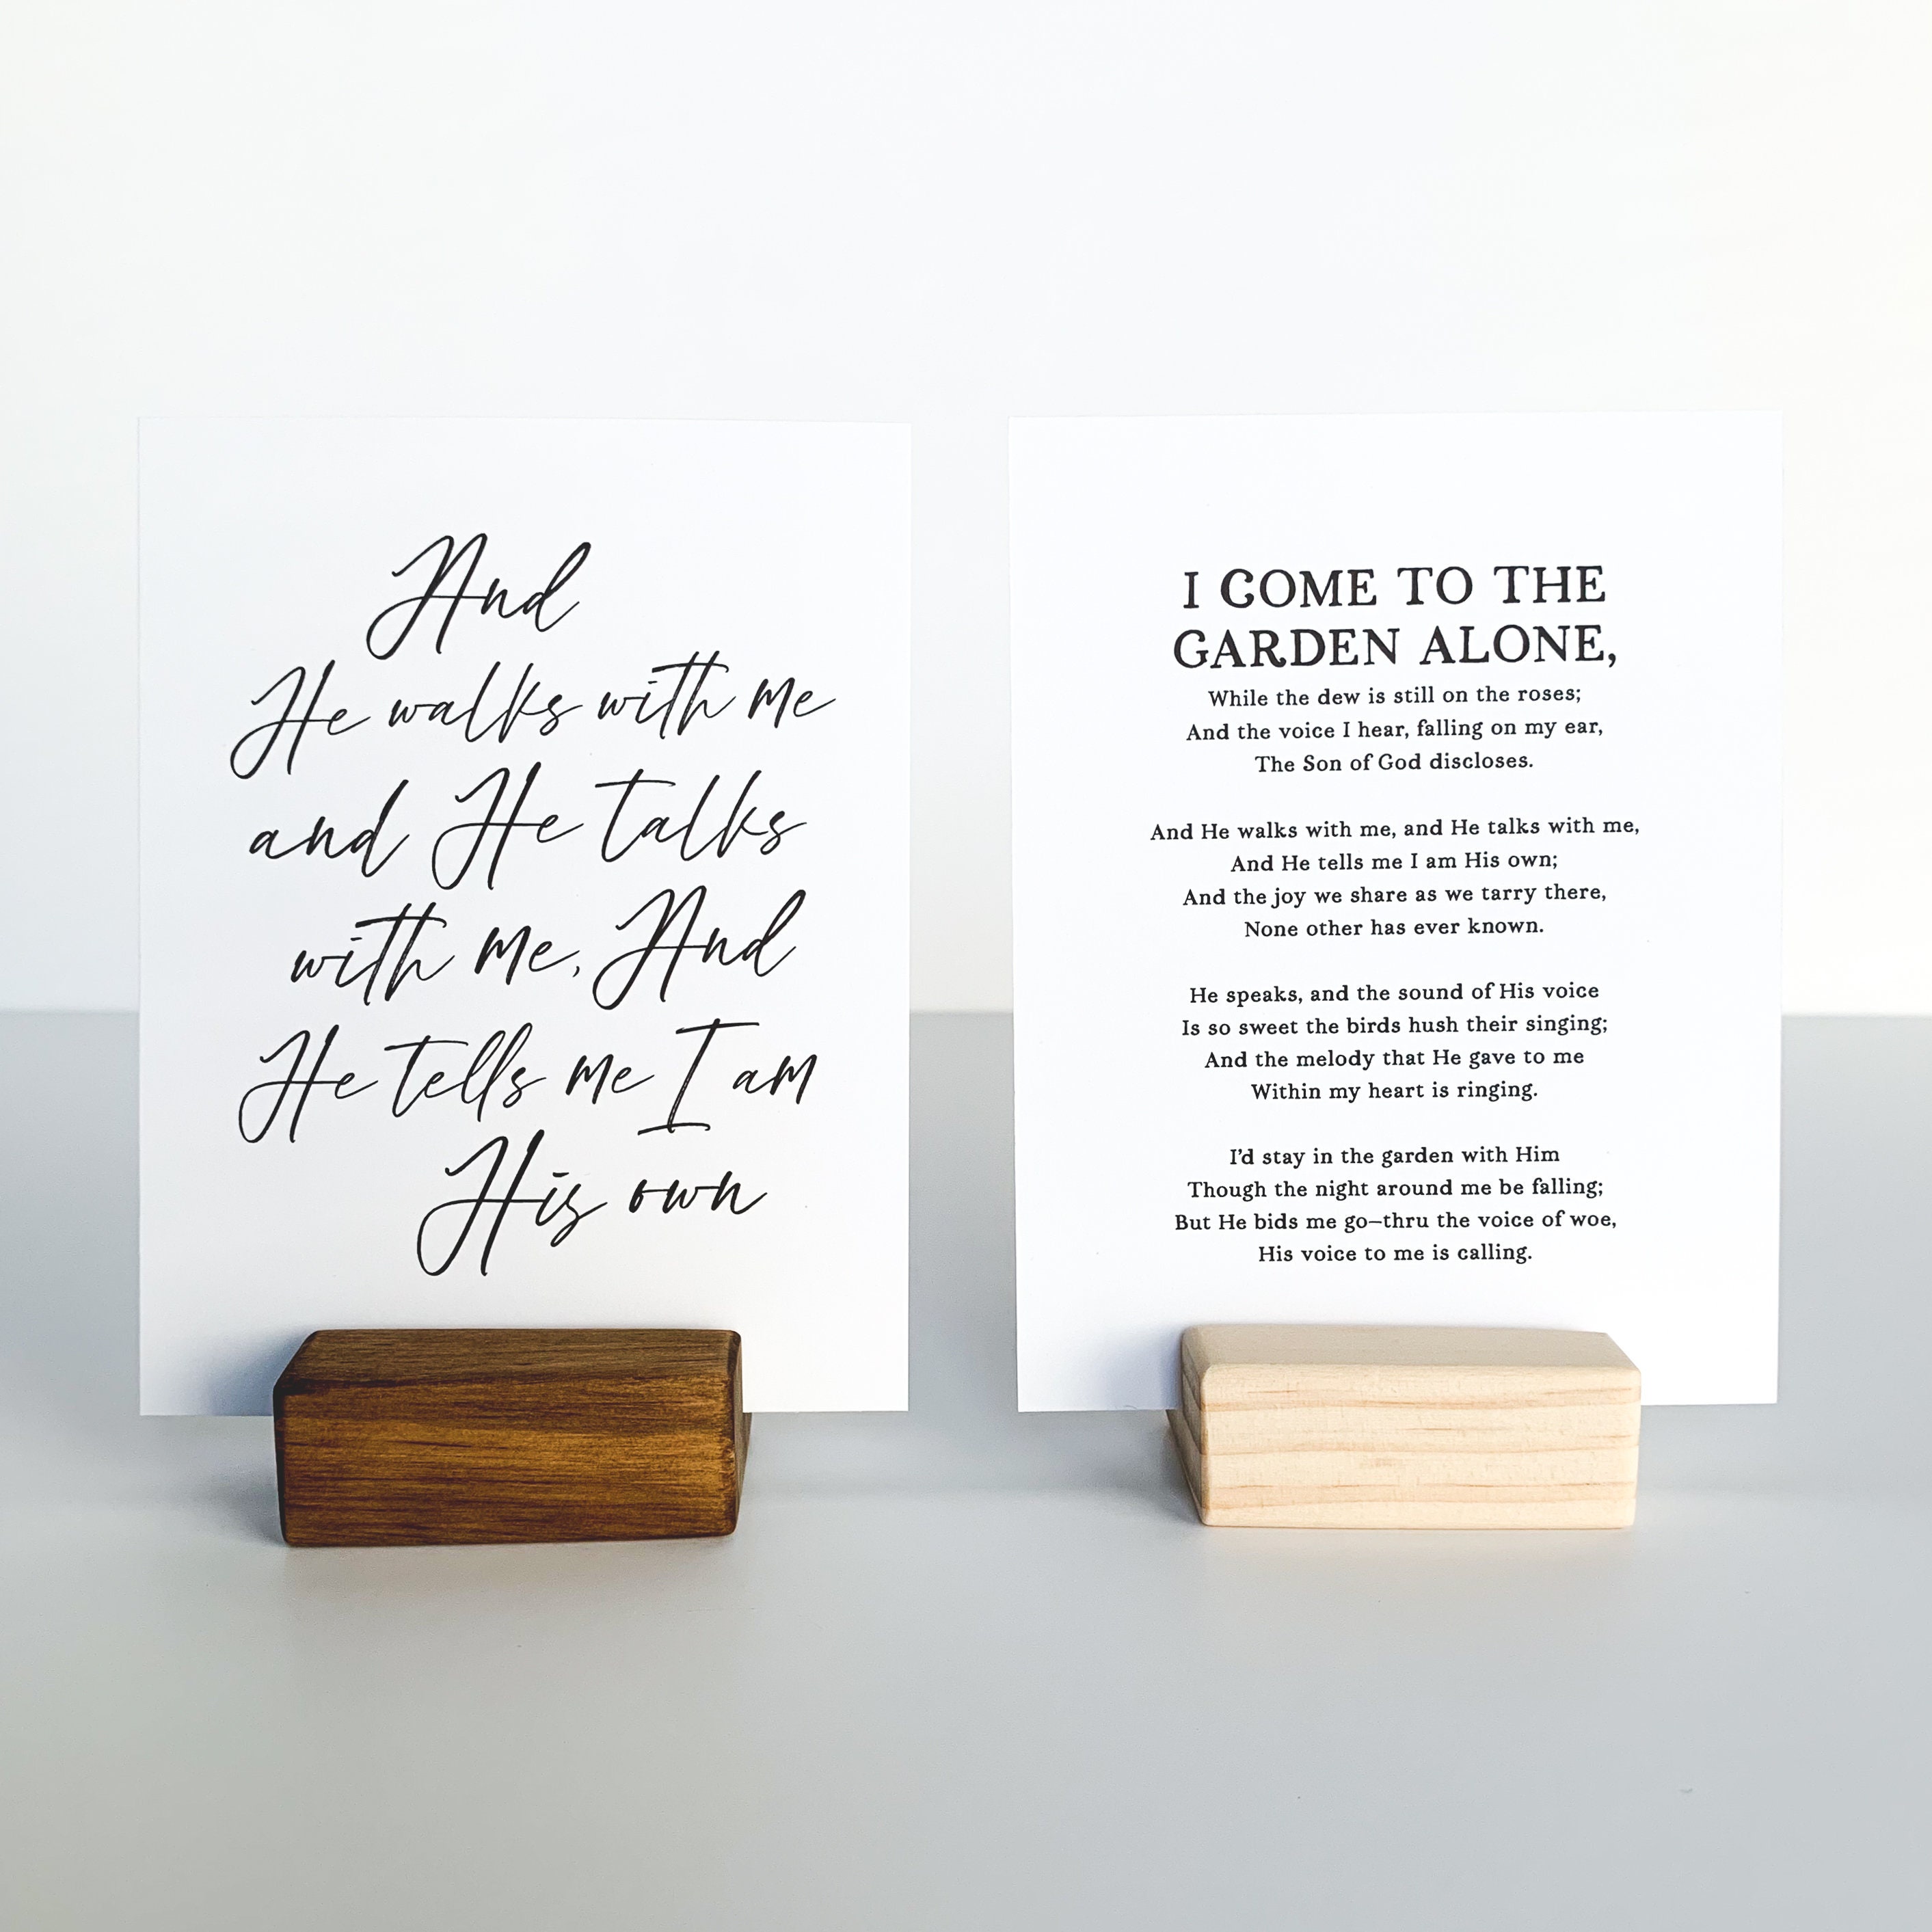 And
He walks with me
and He talks
with me, And
He tells me I am
His own
I COME TO THE
GARDEN ALONE,
While the dew is still on the roses;
And the voice I hear, falling on my ear,
The Son of God discloses.
And He walks with me, and He talks with me,
And He tells me I am His own;
And the joy we share as we tarry there,
None other has ever known.
He speaks, and the sound of His voice
Is so sweet the birds hush their singing;
And the melody that He gave to me
Within my heart is ringing.
I'd stay in the garden with Him
Though the night around me be falling;
But He bids me go—thru the voice of woe,
His voice to me is calling.